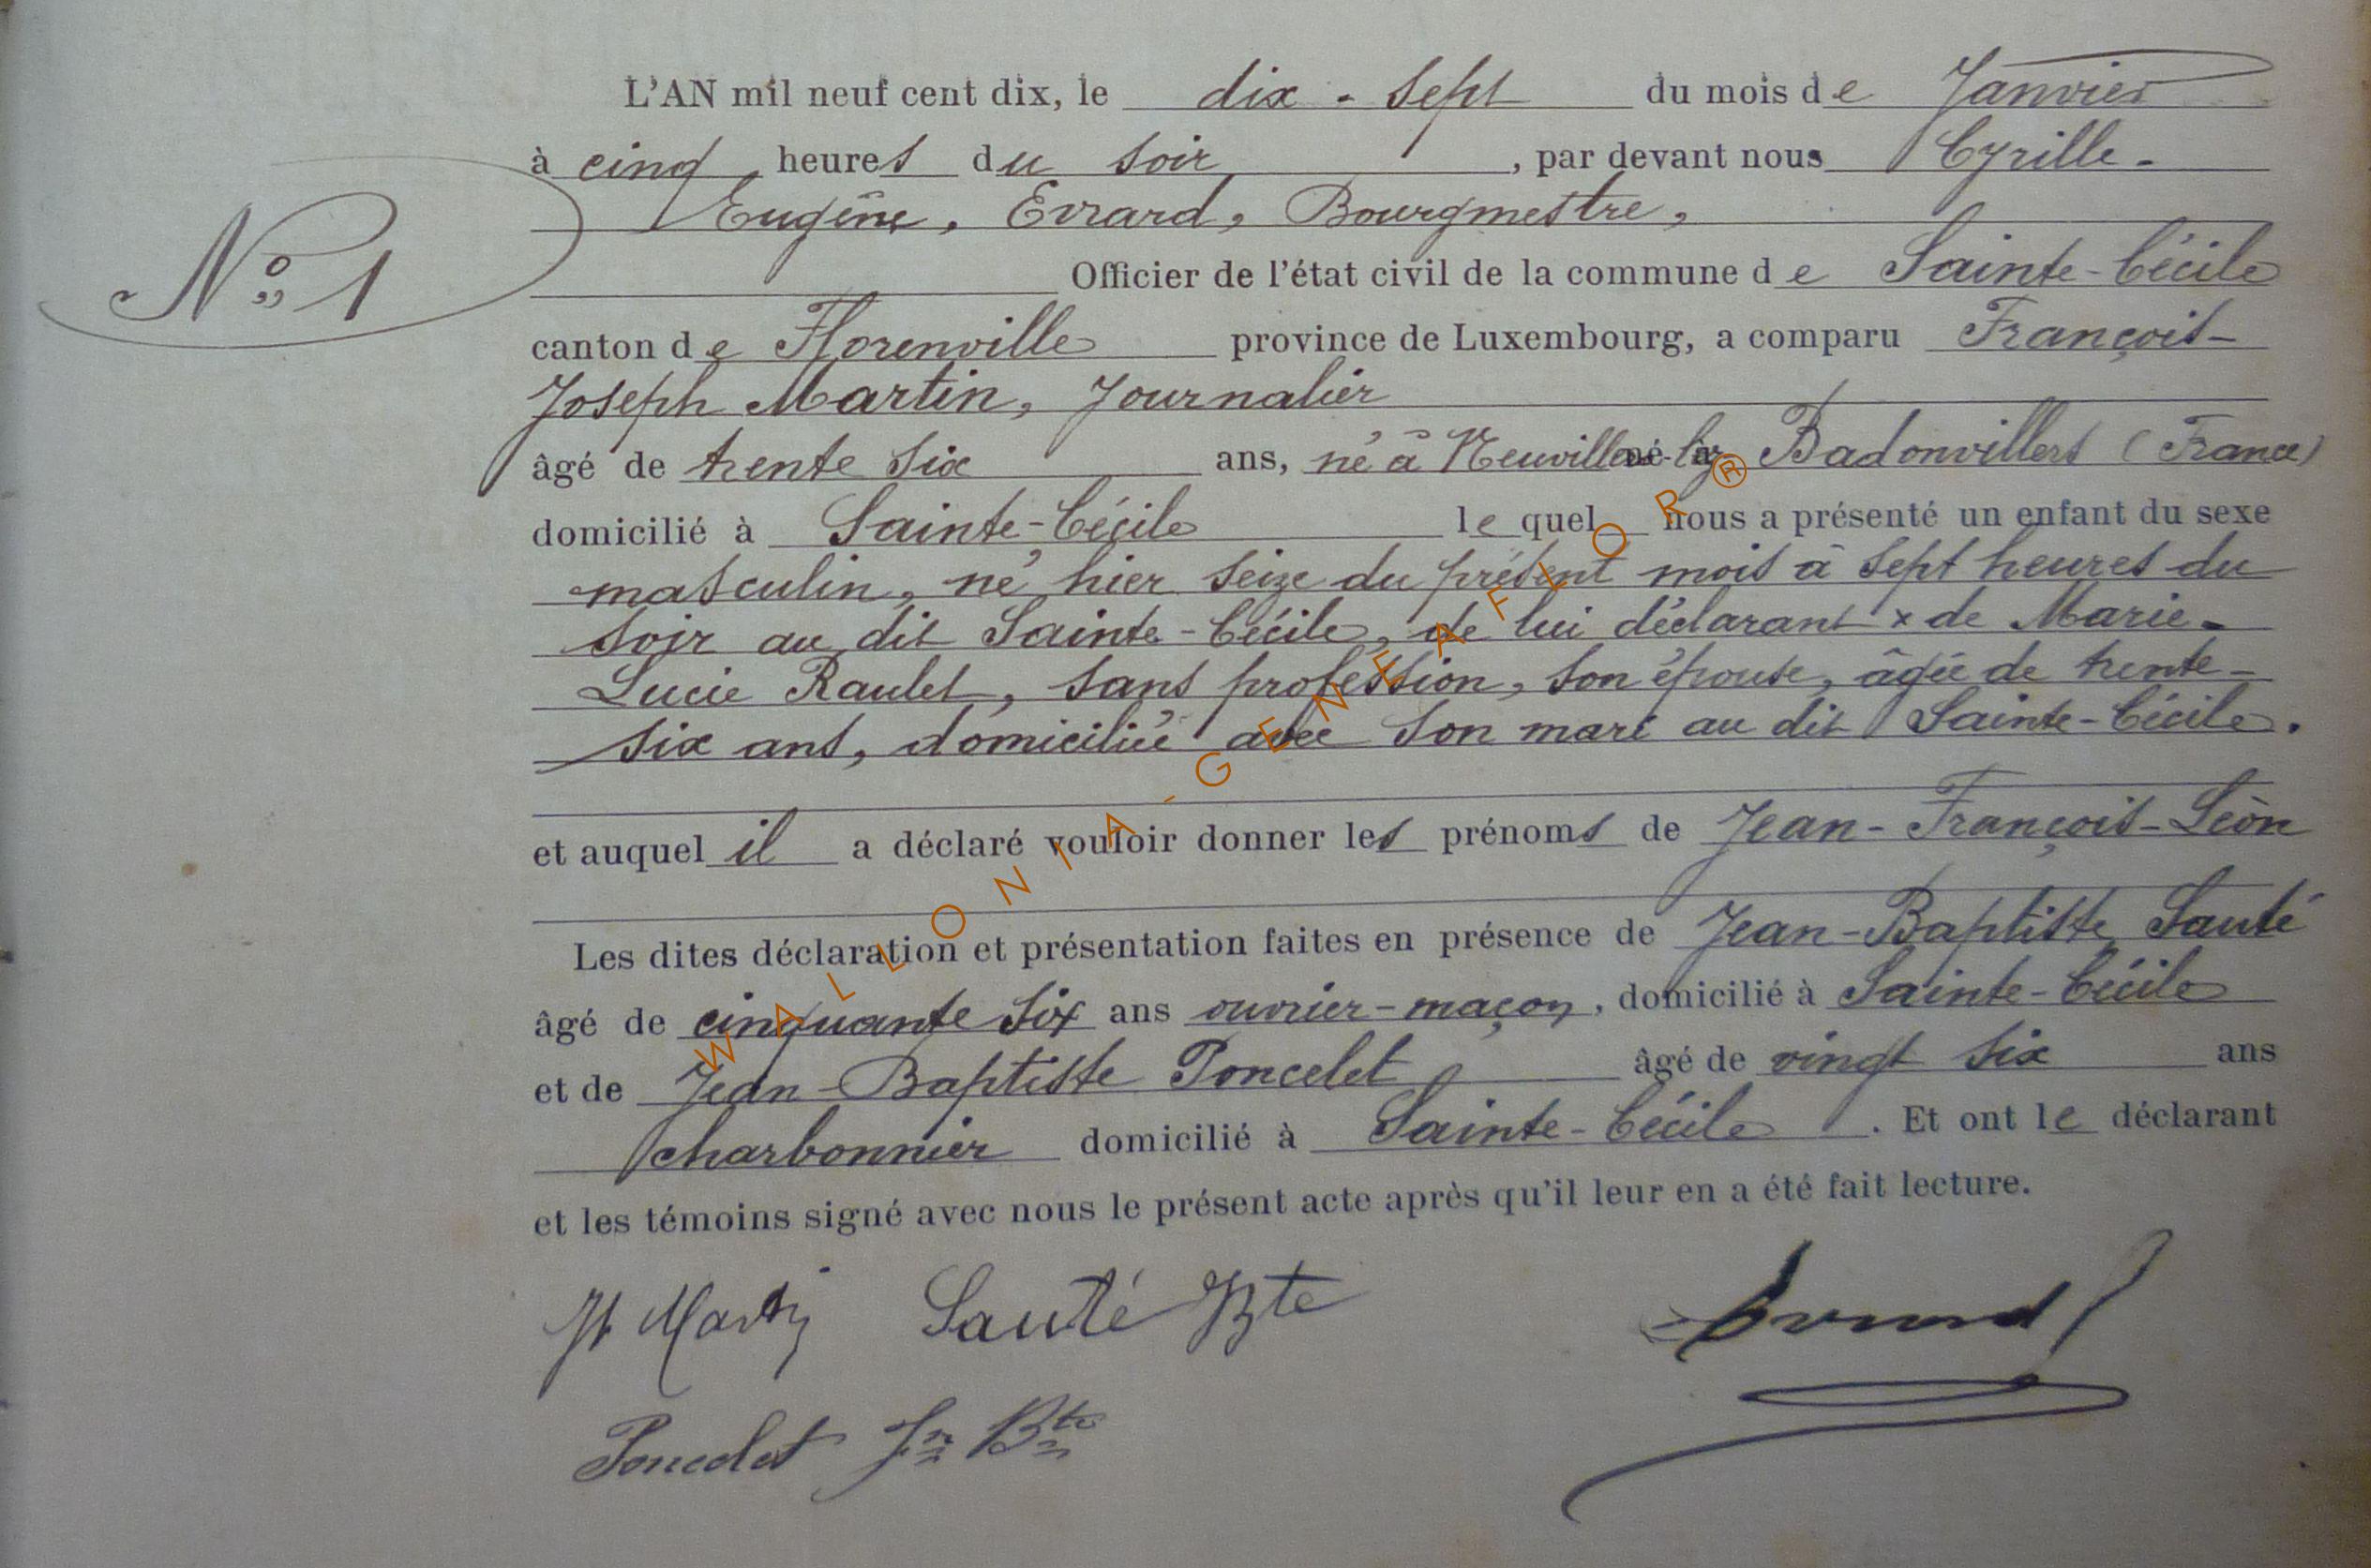 L'AN mil neuf cent dix, le dix-sept du mois de Janvier
à cinq heures du soir, par devant nous Cyrille-
Eugêne, Evrard, Bourgmestre,
N° 1
Officier de l'état civil de la commune de Sainte-Cécile
canton de Florenville province de Luxembourg, a comparu François-
Joseph Martin, Journalier
âgé de trente six ans, né à Neuville-lez-Badonvillers (France)
domicilié à Sainte-Cécile lequel nous a présenté un enfant du sexe
masculin, né hier seize du présent mois à sept heures du
soir au dit Sainte-Cécile, de lui déclarant × de Marie-
Lucie Raulet, sans profession, son épouse, âgée de trente-
six ans, domiciliée avec son mari au dit Sainte-Cécile.
et auquel il a déclaré vouloir donner les prénoms de Jean-François-Léon
Les dites déclaration et présentation faites en présence de Jean-Baptiste Sauté
âgé de cinquante six ans ouvrier-maçon, domicilié à Sainte-Cécile
et de Jean-Baptiste Poncelet âgé de vingt six ans
charbonnier domicilié à Sainte-Cécile. Et ont le déclarant
et les témoins signé avec nous le présent acte après qu'il leur en a été fait lecture.
Martin Sauté Bte Evrard
Poncelet Jn Bte
WALLONIA-GENEAFLOR®